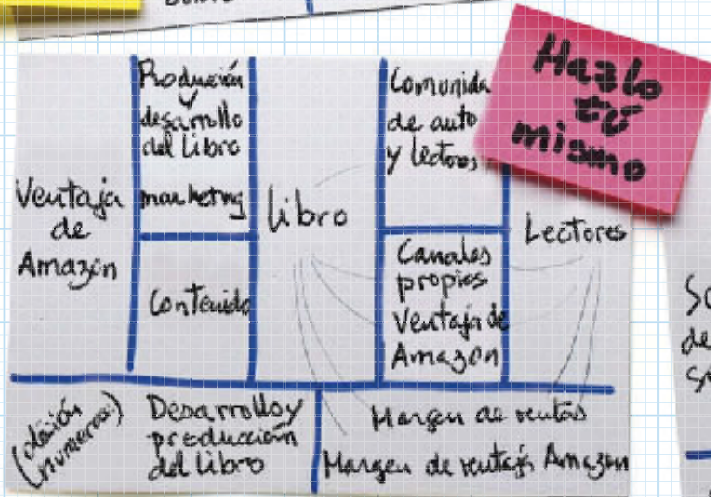 Hazlo
tú
mismo
Ventaja
de
Amazon
Producción
y
desarrollo
del libro
marketing
Contenido
libro
Comunida
de auto
y lectores
Canales
propios
Ventaja de
Amazon
Lectores
Desarrollo y
producción
del libro
Margen de ventas
Margen de ventaja Amazon
de